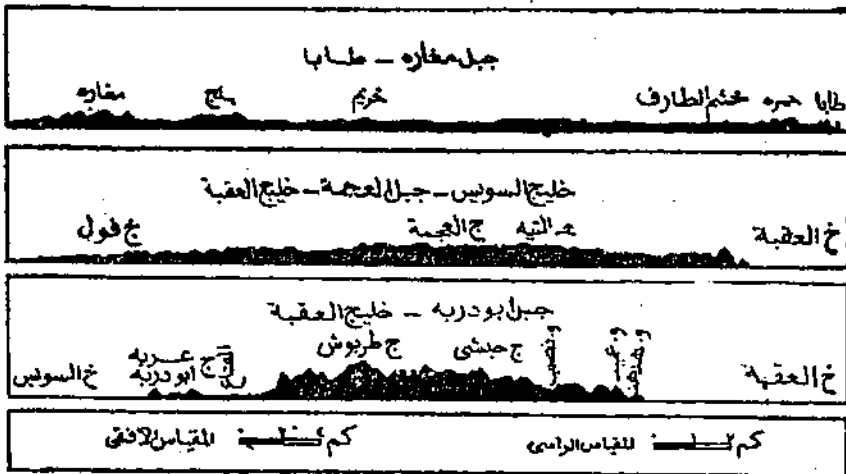 جبل مغاره - طابا
طابا حمره مخشم الطارف خريم يلج مغاره
خليج السويس - جبل العجمة - خليج العقبة
خ العقبة هـ التيه ج العجمة ج فول
جبل ابودربه - خليج العقبة
خ العقبة و نصب ج حبشى ج طربوش ج عربه ج ابودربه خ السويس
كم المقياس الراسى كم المقياس الافقى